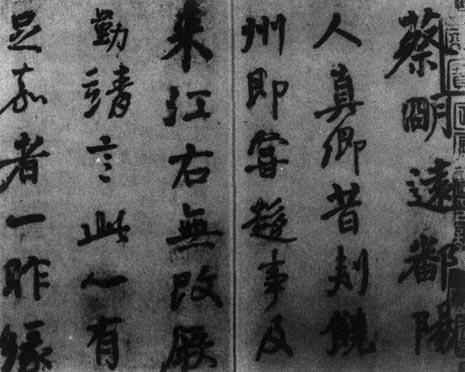 蔡明遠鄱陽
人真卿昔刾饒
州即嘗趍事及
来江右無改厥
勤靖言此心有
足嘉者一昨緣